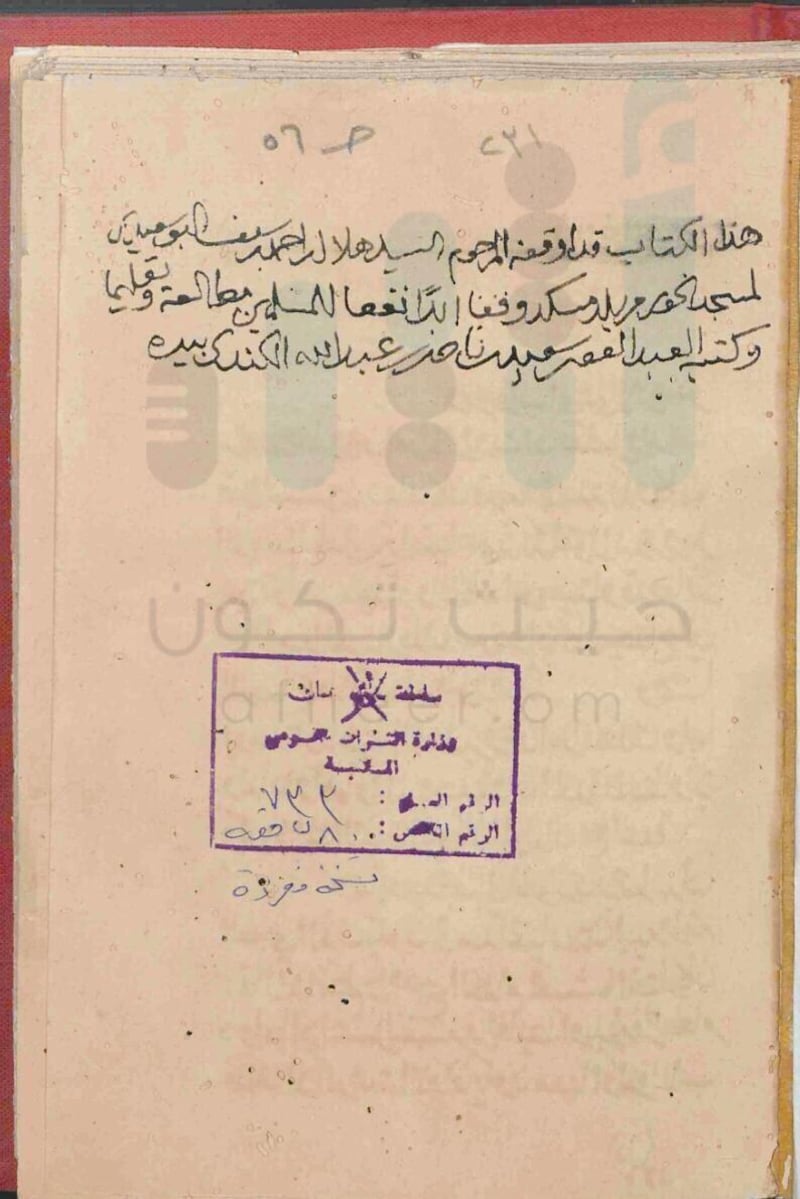 ص ٥٦ ٢٣١
هذا الكتاب قد اوقفه المرحوم السيد هلال بن احمد بن سيف البوسعيدي
لمسجد الخور من بلد مسكد وقفا ابدًا نفعا للمسلمين مطالعة وتعليما
وكتبه العبد الفقير سعيد بن ناصر بن عبدالله الكندي بيده
حيث تكون
سلطنة عمان
وزارة التراث القومي
المكتبة
الرقم العام : ٧٣٣
الرقم الخاص : ٨٠ فقه
نسخة مفردة